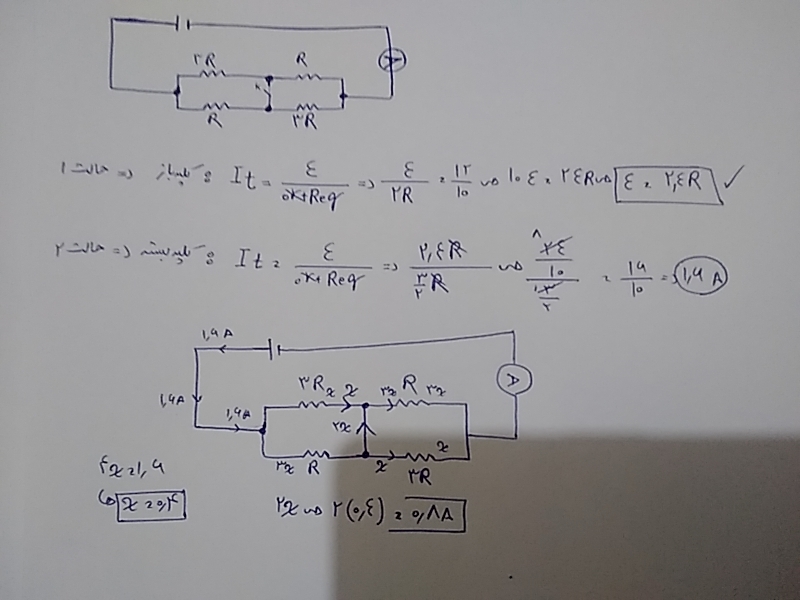 A
۳R R
K
R ۳R
حالت ۱ => کلید باز : It = ε / (r+Req) => ε / ۲R = ۱۲ / ۱۰ ۱۰ε = ۲۴R ε = ۲٫۴R ✓
حالت ۲ => کلید بسته : It = ε / (r+Req) => ۲٫۴R / (۳/۲ R) (۲۴/۱۰) / (۳/۲) ۸ = ۱۶ / ۱۰ = ۱٫۶ A
۱٫۶A
A
۳R x x ۳x R ۳x
۱٫۶A ۱٫۶A ۲x
۳x R x x
۳R
۴x = ۱٫۶
x = ۰٫۴
۲x ۲(۰٫۴) = ۰٫۸A